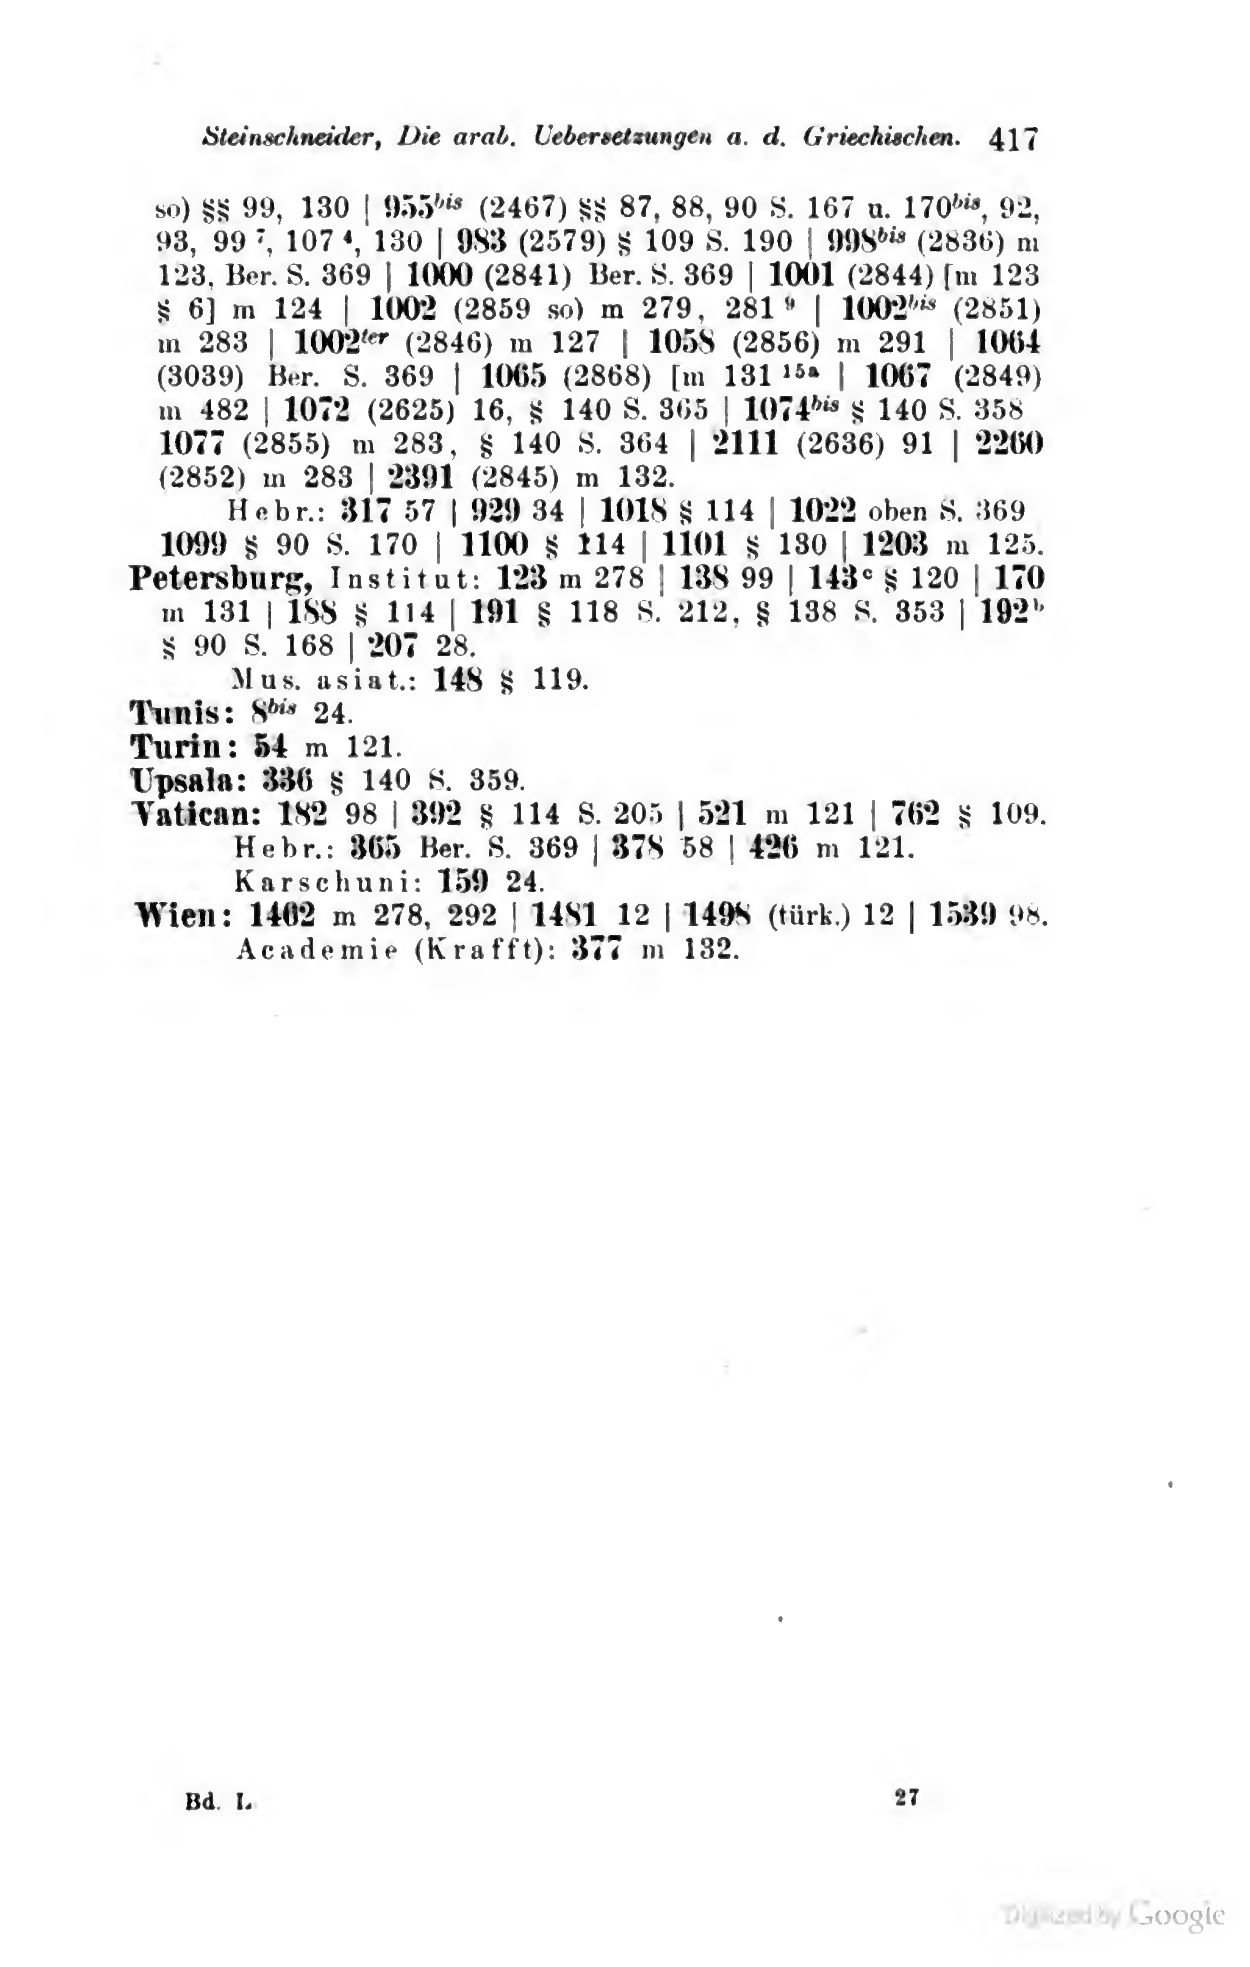 Steinschneider, Die arab. Uebersetzungen a. d. Griechischen. 417
so) §§ 99, 130 | 955bis (2467) §§ 87, 88, 90 S. 167 u. 170bis, 92,
93, 99 7, 107 4, 130 | 983 (2579) § 109 S. 190 | 998bis (2836) m
123, Ber. S. 369 | 1000 (2841) Ber. S. 369 | 1001 (2844) [m 123
§ 6] m 124 | 1002 (2859 so) m 279, 281 9 | 1002bis (2851)
m 283 | 1002ter (2846) m 127 | 1058 (2856) m 291 | 1064
(3039) Ber. S. 369 | 1065 (2868) [m 131 15a | 1067 (2849)
m 482 | 1072 (2625) 16, § 140 S. 365 | 1074bis § 140 S. 358
1077 (2855) m 283, § 140 S. 364 | 2111 (2636) 91 | 2260
(2852) m 283 | 2391 (2845) m 132.
Hebr.: 317 57 | 929 34 | 1018 § 114 | 1022 oben S. 369
1099 § 90 S. 170 | 1100 § 114 | 1101 § 130 | 1203 m 125.
Petersburg, Institut: 123 m 278 | 138 99 | 143c § 120 | 170
m 131 | 188 § 114 | 191 § 118 S. 212, § 138 S. 353 | 192b
§ 90 S. 168 | 207 28.
Mus. asiat.: 148 § 119.
Tunis: 8bis 24.
Turin: 54 m 121.
Upsala: 336 § 140 S. 359.
Vatican: 182 98 | 392 § 114 S. 205 | 521 m 121 | 762 § 109.
Hebr.: 365 Ber. S. 369 | 378 58 | 426 m 121.
Karschuni: 159 24.
Wien: 1462 m 278, 292 | 1481 12 | 1498 (türk.) 12 | 1539 98.
Academie (Krafft): 377 m 132.
Bd. L. 27
Digitized by Google